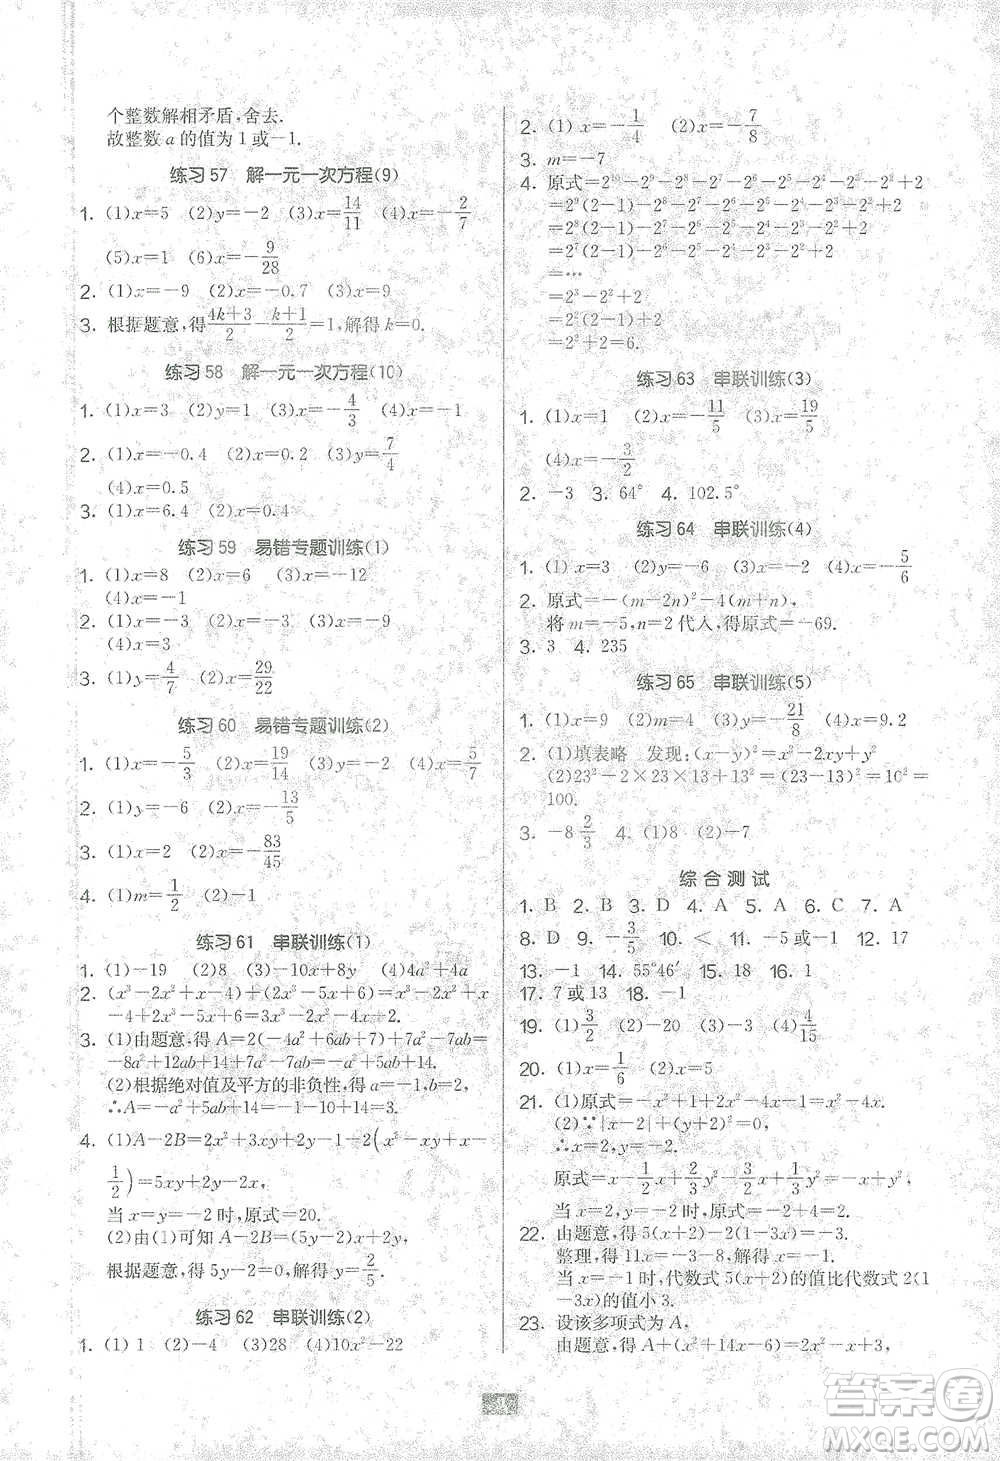 个整数解相矛盾,舍去.
故整数a的值为1或-1.
练习57 解一元一次方程(9)
1. (1)x=5 (2)y=-2 (3)x=14/11 (4)x=-2/7
(5)x=1 (6)x=-9/28
2. (1)x=-9 (2)x=-0.7 (3)x=9
3. 根据题意,得(4k+3)/2-(k+1)/2=1,解得k=0.
练习58 解一元一次方程(10)
1. (1)x=3 (2)y=1 (3)x=-4/3 (4)x=-1
2. (1)x=-0.4 (2)x=0.2 (3)x=7/4
(4)x=0.5
3. (1)x=6.4 (2)x=0
练习59 易错专题训练(1)
1. (1)x=8 (2)x=6 (3)x=-12
(4)x=-1
2. (1)x=-3 (2)x=-3 (3)x=-1
(4)x=3
3. (1)y=4/7 (2)x=29/22
练习60 易错专题训练(2)
1. (1)x=-5/3 (2)x=19/14 (3)y=-2 (4)x=5/7
2. (1)y=-6 (2)x=-13/5
3. (1)x=2 (2)x=-83/45
4. (1)m=1/2 (2)-1
练习61 串联训练(1)
1. (1)-19 (2)8 (3)-10x+8y (4)4a²+4a
2. (x³-2x²+x-4)+(2x³-5x+6)=x³-2x²+x
-4+2x³-5x+6=3x³-2x²-4x+2.
3. (1)由题意,得A=2(-4a²+6ab+7)+7a²-7ab=
-8a²+12ab+14+7a²-7ab=-a²+5ab+14.
(2)根据绝对值及平方的非负性,得a=-1,b=2,
∴A=-a²+5ab+14=-1-10+14=3.
4. (1)A-2B=2x²+3xy+2y-1-2(x²-xy+x-
1/2)=5xy+2y-2x,
当x=y=-2时,原式=20.
(2)由(1)可知A-2B=(5y-2)x+2y,
根据题意,得5y-2=0,解得y=2/5.
练习62 串联训练(2)
1. (1)1 (2)-4 (3)28 (4)10x²-22
2. (1)x=-1/4 (2)x=-7/8
3. m=-7
4. 原式=2¹⁰-2⁹-2⁸-2⁷-2⁶-2⁵-2⁴-2³-2²+2
=2⁹(2-1)-2⁸-2⁷-2⁶-2⁵-2⁴-2³-2²+2
=2⁸(2-1)-2⁷-2⁶-2⁵-2⁴-2³-2²+2
=2⁷(2-1)-2⁶-2⁵-2⁴-2³-2²+2
=…
=2³-2²+2
=2²(2-1)+2
=2²+2=6.
练习63 串联训练(3)
1. (1)x=1 (2)x=-11/5 (3)x=19/5
(4)x=-3/2
2. -3 3. 64° 4. 102.5°
练习64 串联训练(4)
1. (1)x=3 (2)y=-6 (3)x=12 (4)x=-5/6
2. 原式=-(m-2n)²-4(m+n),
将m=-5,n=2代入,得原式=-69.
3. 3 4. 235
练习65 串联训练(5)
1. (1)x=9 (2)m=4 (3)y=-21/8 (4)x=9.2
2. (1)填表略 发现:(x-y)²=x²-2xy+y²
(2)23²-2×23×13+13²=(23-13)²=10²=
100.
3. -8 2/3 4. (1)8 (2)-7
综合测试
1. B 2. B 3. D 4. A 5. A 6. C 7. A
8. D 9. -3/5 10. < 11. -5或-1 12. 17
13. -1 14. 55°46′ 15. 18 16. 1
17. 7或13 18. -1
19. (1)3/2 (2)-20 (3)-5 (4)4/15
20. (1)x=1/6 (2)x=4
21. (1)原式=-x²+1+2x²-4x-1=x²-4x.
(2)∵|x-2|+(y+1)²=0,
∴x=2,y=-1.
原式=x-1/2x+2/3y²-3/2x+1/3y²=-x+y²,
当x=2,y=-1时,原式=-2+4=2.
22. 由题意,得5(x+2)-2(1-3x)=-3,
整理,得11x=-3-8,解得x=-1.
当x=-1时,代数式5(x+2)的值比代数式2(1
-3x)的值小3.
23. 设该多项式为A,
由题意,得A+(x²+14x-6)=2x²-x+3,
答案圈
MXQE.COM